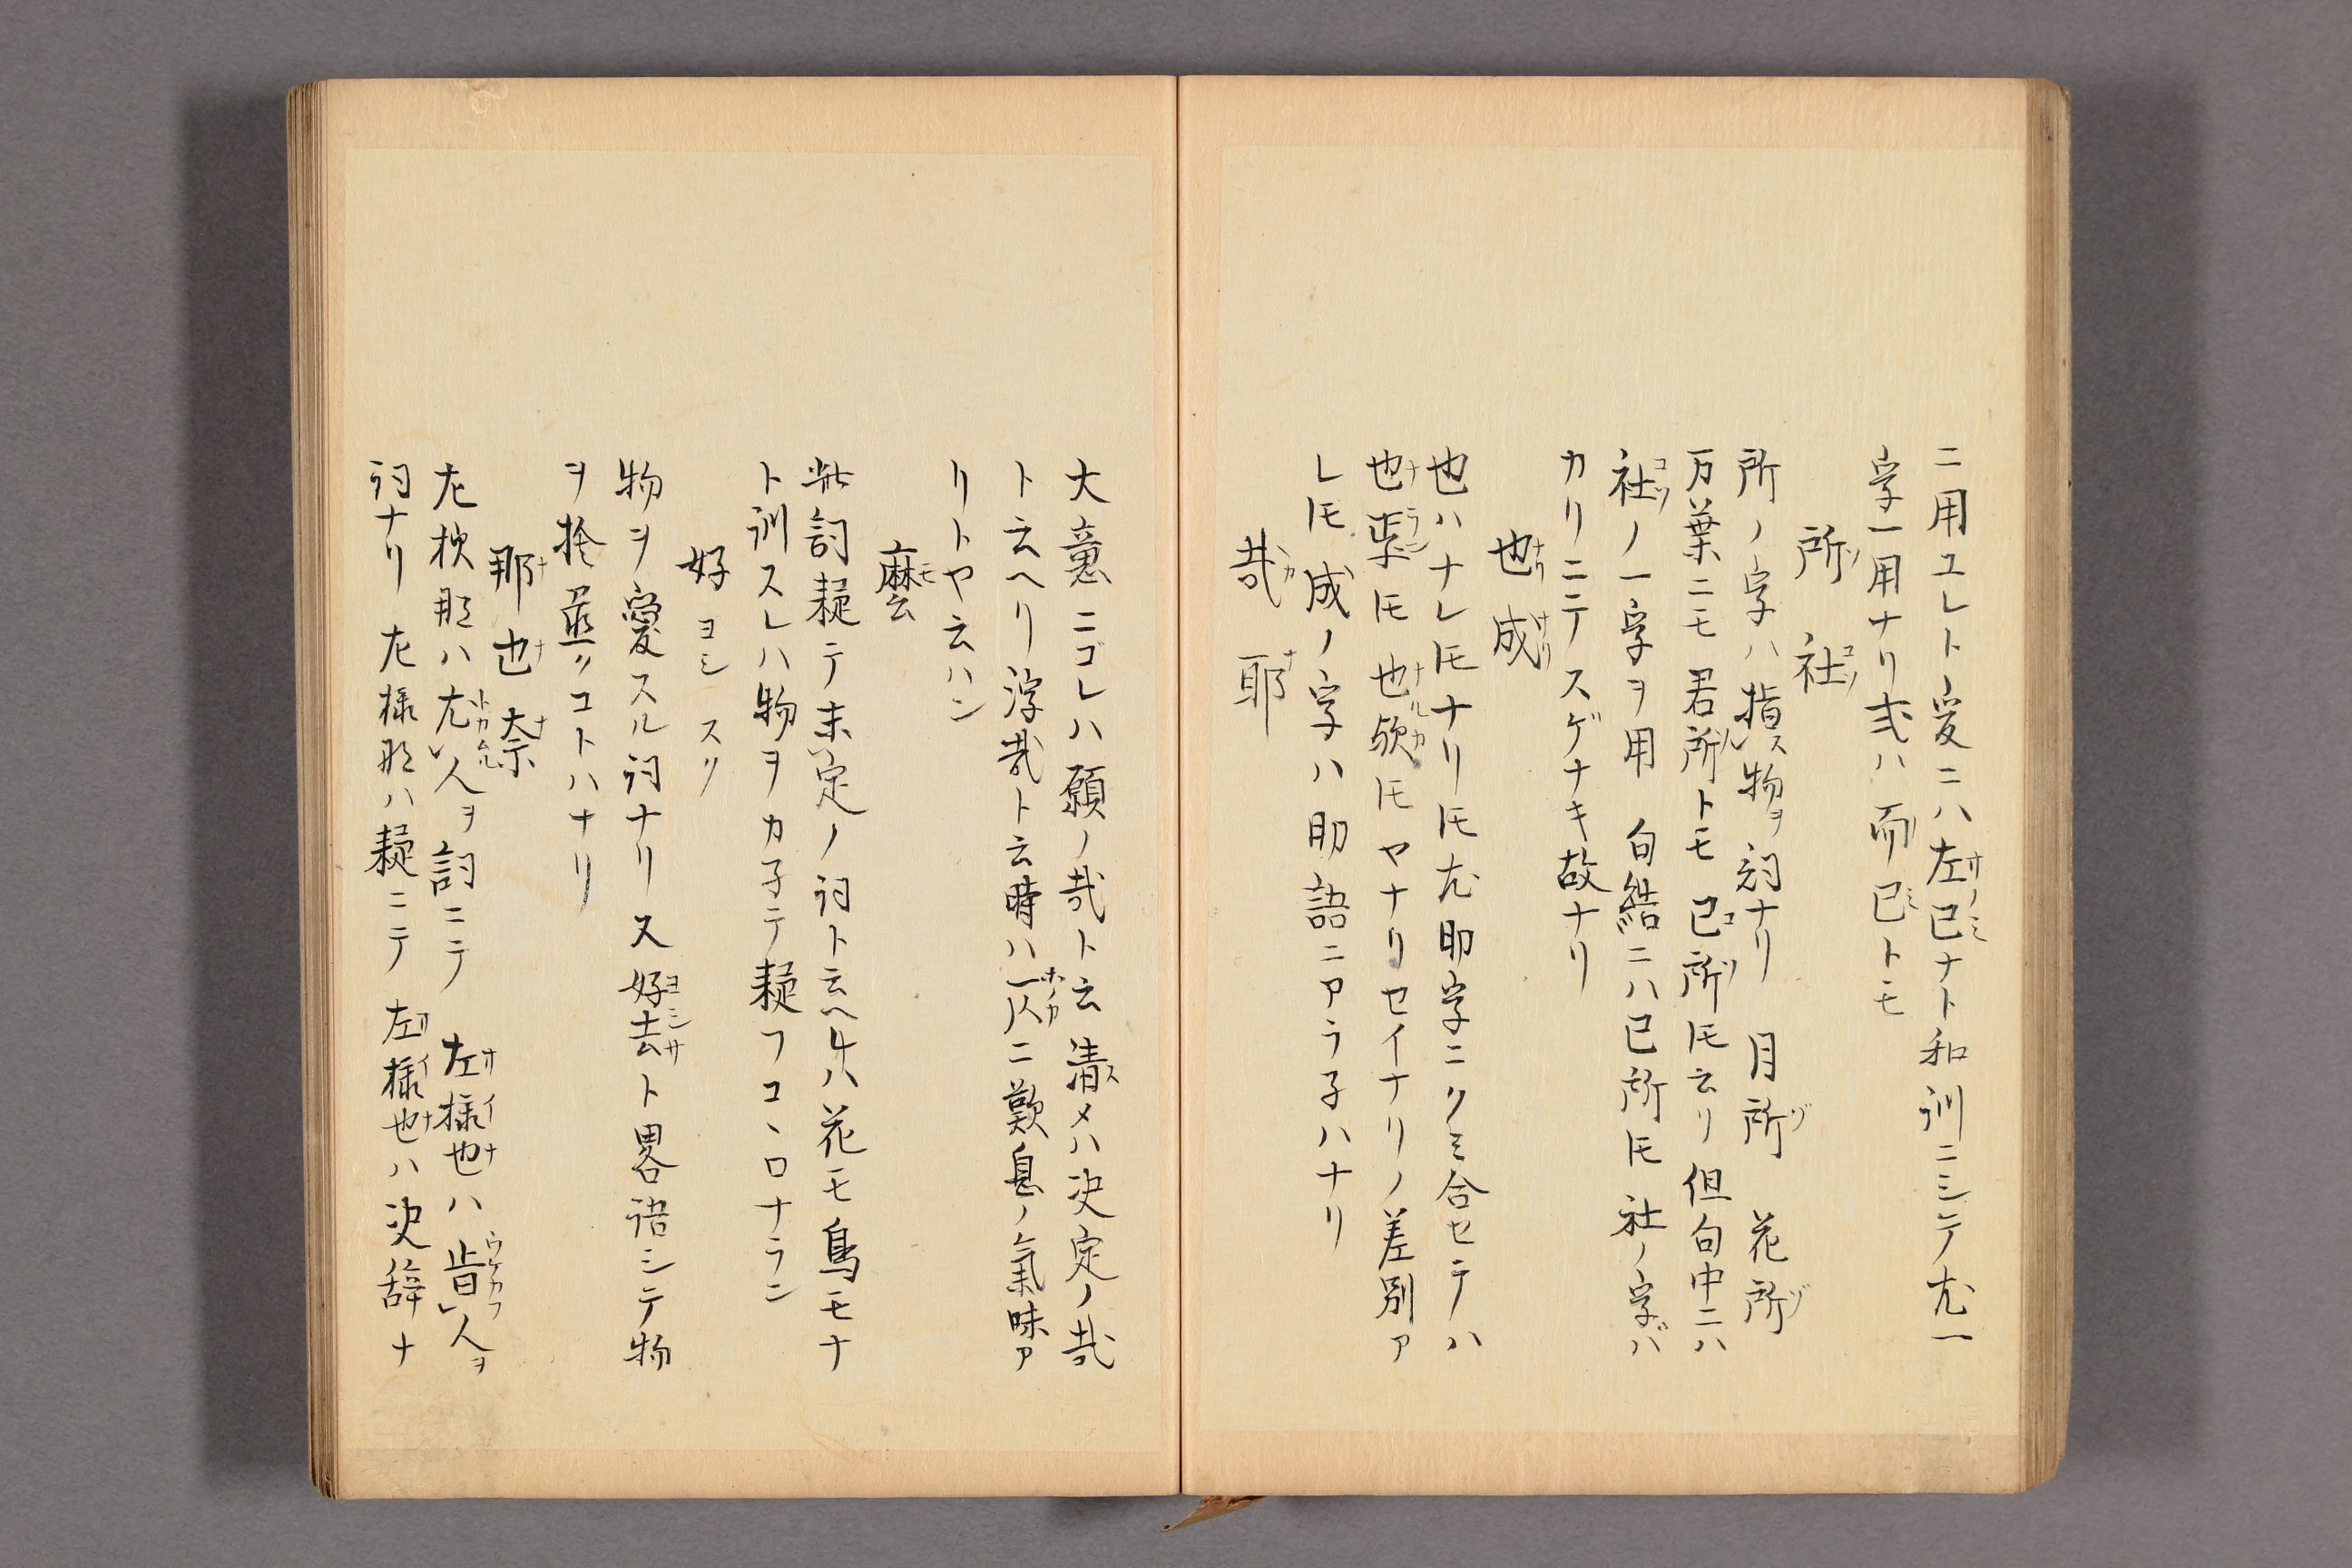 ニ用ユレト爰ニハ左已ナト和訓ニシテ尤一
字一用ナリ或ハ而已トモ
所 社
所ノ字ハ指ス物ヲ詞ナリ 月所 花所
万葉ニモ君所トモ已所𪜈云リ但句中ニハ
社ノ一字ヲ用 句結ニハ已所𪜈社ノ字バ
カリニテスゲナキ故ナリ
也 成
也ハナレ𪜈ナリ𪜈尤助字ニクミ合セテハ
也 𪜈也歟𪜈ヤナリセイナリノ差別ア
レ𪜈成ノ字ハ助語ニアラ子ハナリ
哉 耶
大意ニゴレハ願ノ哉ト云清メハ決定ノ哉
ト云ヘリ浮哉ト云時ハ 二歎息ノ氣味ア
リトヤ云ハン
麼
此詞疑テ未定ノ詞ト云ヘ𪜈花モ鳥モナ
ト訓スレハ物ヲカ子テ疑フコヽロナラン
好 ヨシ スリ
物ヲ愛スル詞ナリ又好去ト畧語シテ物
ヲ捨置クコトハナリ
那 也 奈
左様那ハ尤人ヲ詞ニテ 左様也ハ肯人ヲ
詞ナリ 左様那ハ疑ニテ 左様也ハ決辞ナ